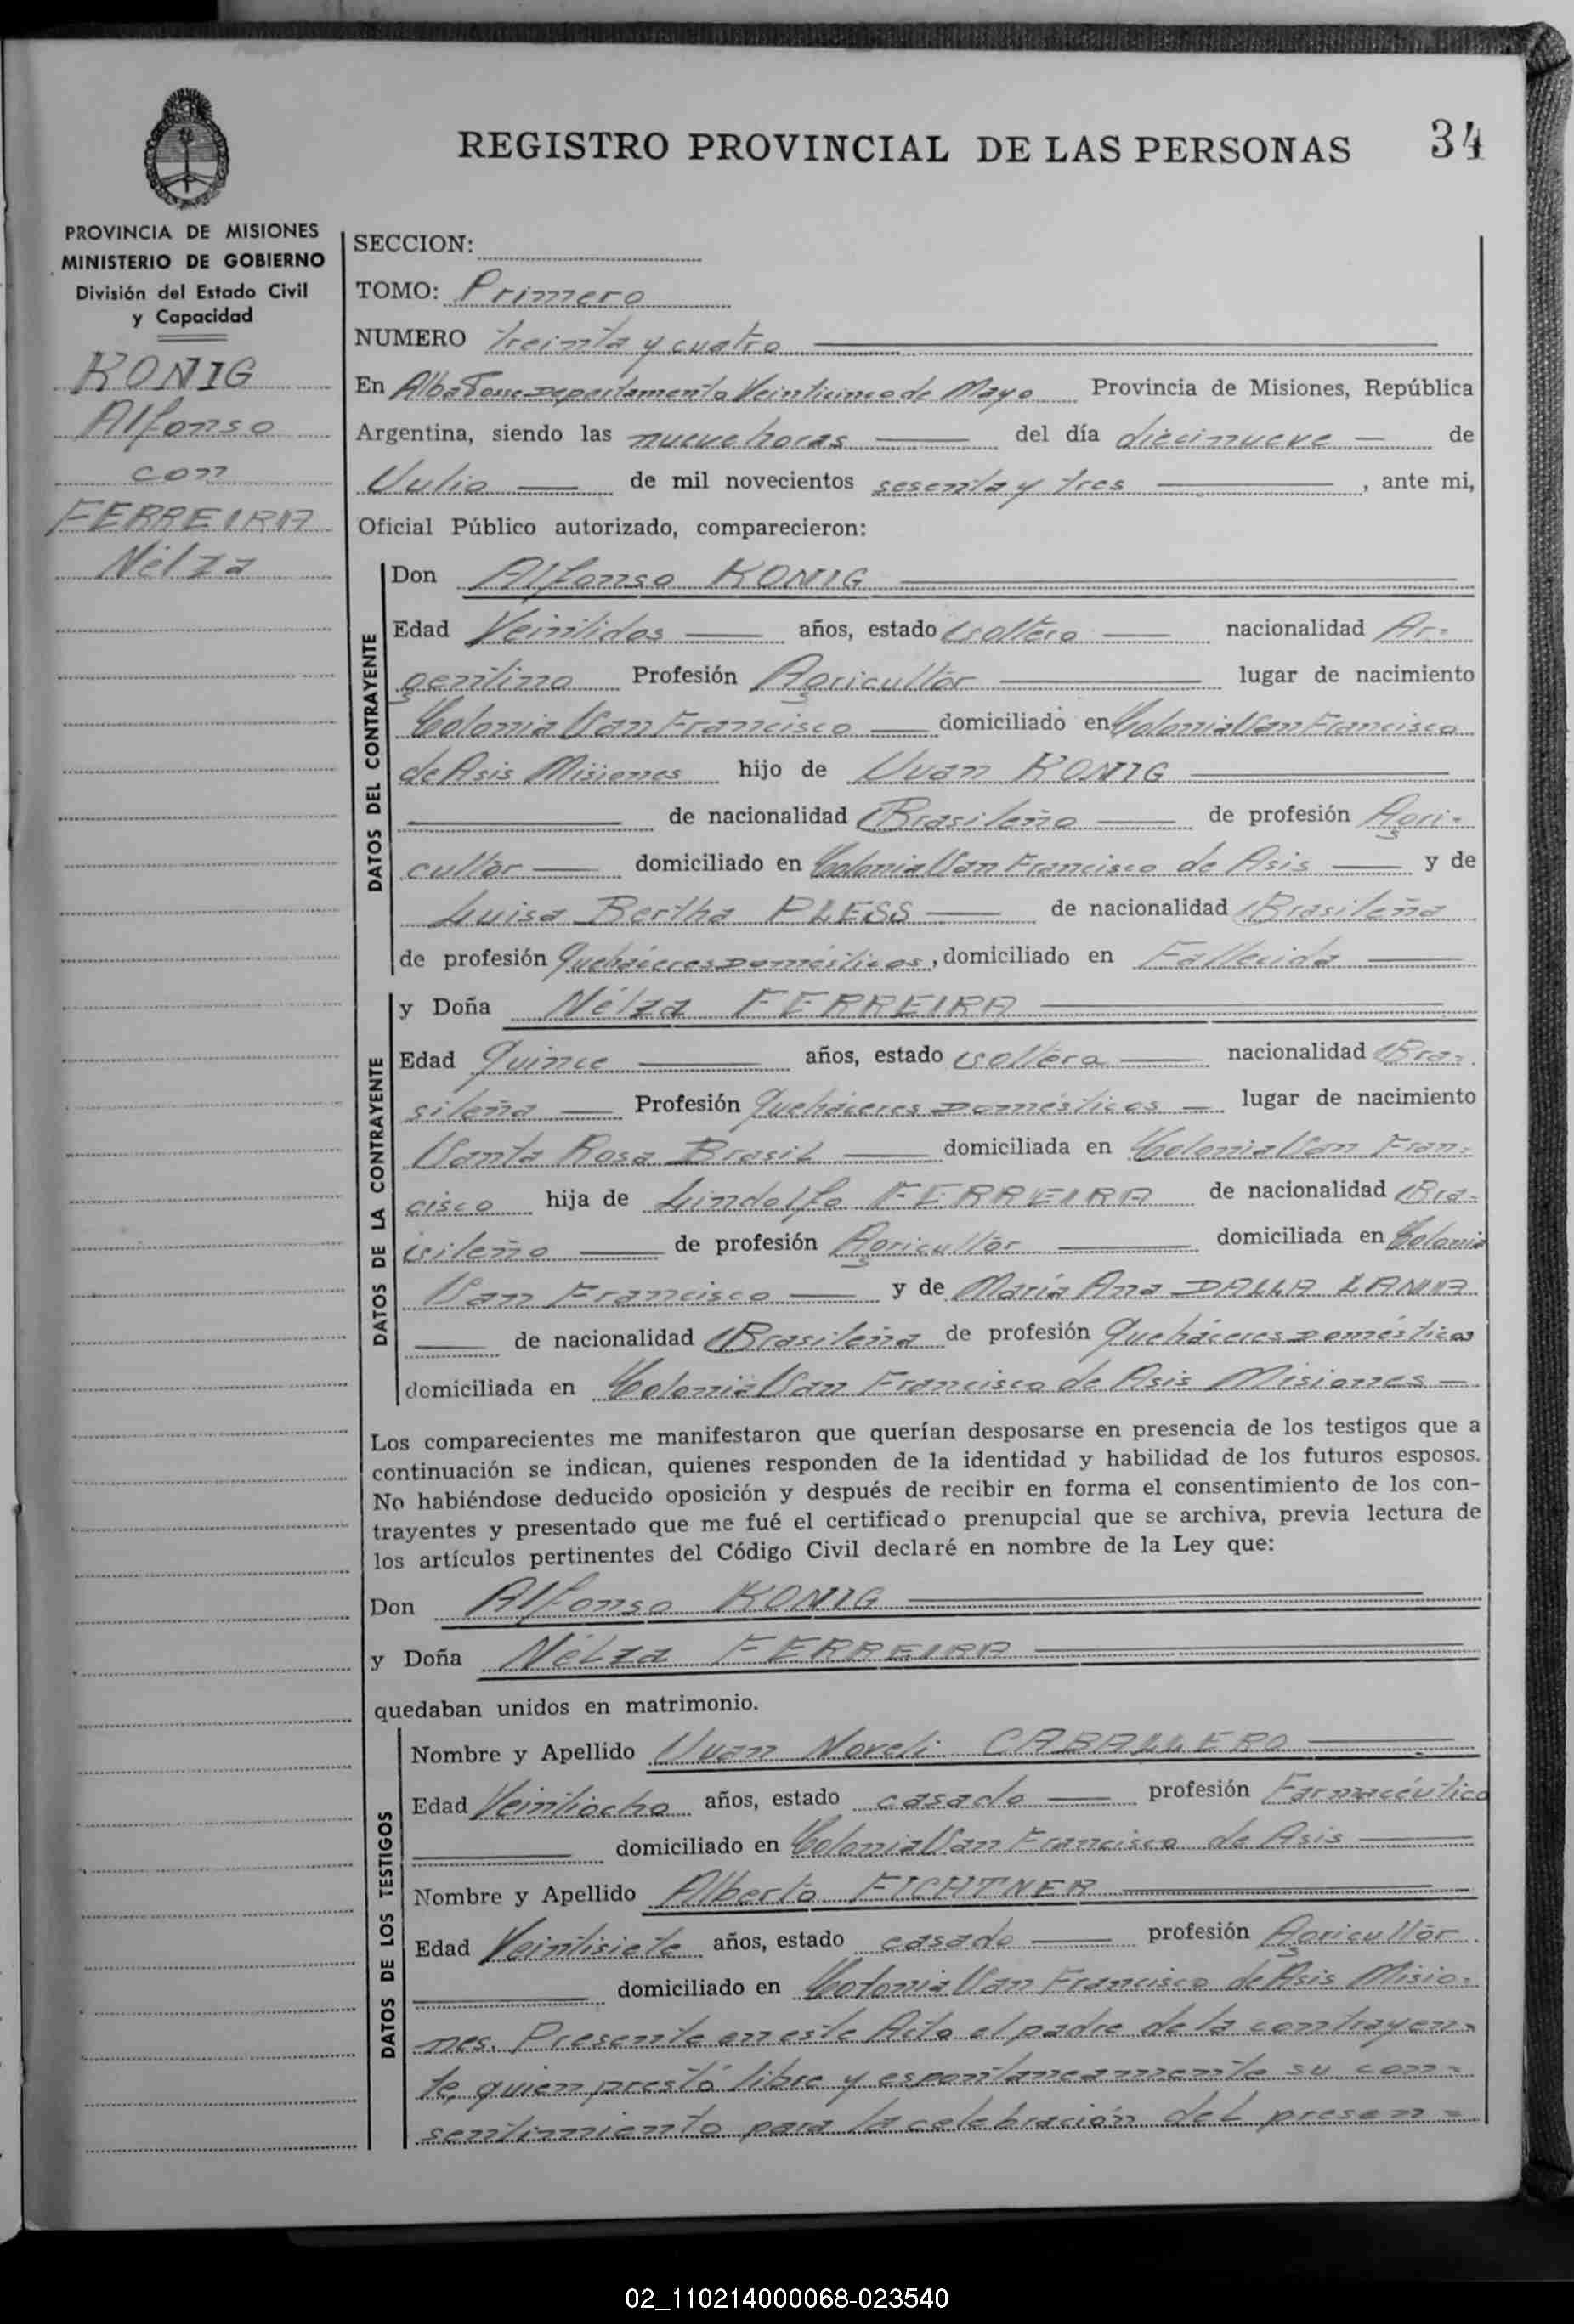 REGISTRO PROVINCIAL DE LAS PERSONAS
34
PROVINCIA DE MISIONES
MINISTERIO DE GOBIERNO
División del Estado Civil
y Capacidad
KONIG
Alfonso
con
FERREIRA
Nélza
SECCION:
TOMO: Primero
NUMERO treinta y cuatro
En Alba Posse Departamento Veinticinco de Mayo Provincia de Misiones, República
Argentina, siendo las nueve horas del día diecinueve de
Julio de mil novecientos sesenta y tres , ante mi,
Oficial Público autorizado, comparecieron:
DATOS DEL CONTRAYENTE
Don Alfonso KONIG
Edad Veintidos años, estado soltero nacionalidad Ar=
gentino Profesión Agricultor lugar de nacimiento
Colonia San Francisco domiciliado en Colonia San Francisco
de Asis Misiones hijo de Juan KONIG
de nacionalidad Brasileño de profesión Agri=
cultor domiciliado en Colonia San Francisco de Asis y de
Luisa Bertha PLESS de nacionalidad Brasileña
de profesión Quehaceres Domésticos, domiciliado en Fallecida
DATOS DE LA CONTRAYENTE
y Doña Nélza FERREIRA
Edad Quince años, estado soltera nacionalidad Bra=
sileña Profesión Quehaceres Domésticos lugar de nacimiento
Santa Rosa Brasil domiciliada en Colonia San Fran=
cisco hija de Lindolfo FERREIRA de nacionalidad Bra=
sileño de profesión Agricultor domiciliada en Colonia
San Francisco y de María Ana DALLA
de nacionalidad Brasileña de profesión Quehaceres Domésticos
domiciliada en Colonia San Francisco de Asis Misiones
Los comparecientes me manifestaron que querían desposarse en presencia de los testigos que a
continuación se indican, quienes responden de la identidad y habilidad de los futuros esposos.
No habiéndose deducido oposición y después de recibir en forma el consentimiento de los con-
trayentes y presentado que me fué el certificado prenupcial que se archiva, previa lectura de
los artículos pertinentes del Código Civil declaré en nombre de la Ley que:
Don Alfonso KONIG
y Doña Nélza FERREIRA
quedaban unidos en matrimonio.
DATOS DE LOS TESTIGOS
Nombre y Apellido Juan Noreli CABALLERO
Edad Veintiocho años, estado casado profesión Farmacéutico
domiciliado en Colonia San Francisco de Asis
Nombre y Apellido Alberto FICHTNER
Edad Veintisiete años, estado casado profesión Agricultor
domiciliado en Colonia San Francisco de Asis Misio=
nes. Presente en este Acto el padre de la contrayen=
te, quien prestó libre y espontaneamente su con=
sentimiento para la celebración del presen=
02_110214000068-023540